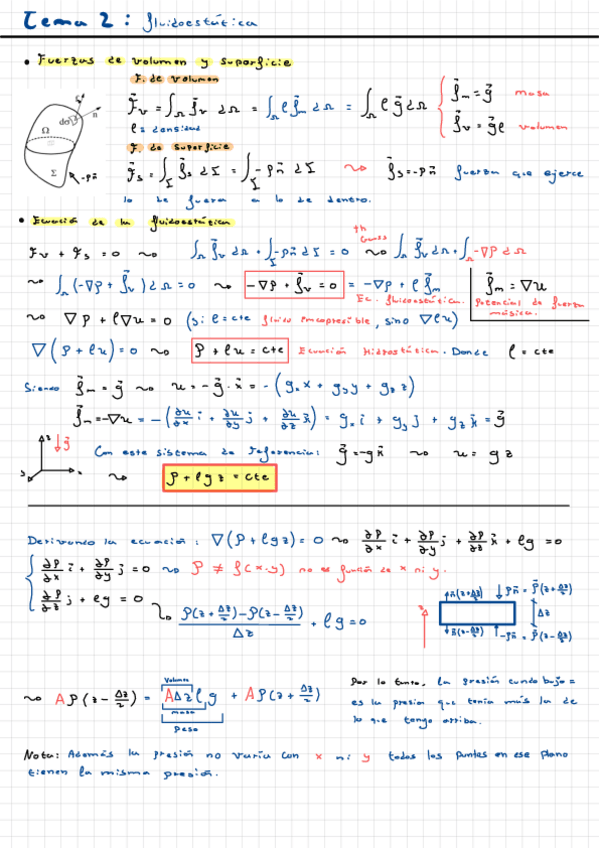 Tema 2: fluidoestática
• Fuerzas de volumen y superficie
F. de volumen
F̄v = ∫Ω f̄v dΩ = ∫Ω ρ f̄m dΩ = ∫Ω ρ ḡ dΩ { f̄m = ḡ masa
ρ = densidad f̄v = ḡρ volumen
F. de superficie
F̄s = ∫Σ f̄s dΣ = ∫Σ -p n̄ dΣ ⇝ f̄s = -p n̄ fuerza que ejerce
lo de fuera a lo de dentro.
dσ n
Ω
Σ
-p n̄
• Ecuación de la fluidoestática
Fv + Fs = 0 ⇝ ∫Ω f̄v dΩ + ∫Σ -p n̄ dΣ = 0 ⇝ th Gauss ∫Ω f̄v dΩ + ∫Ω -∇P dΩ
⇝ ∫Ω (-∇P + f̄v) dΩ = 0 ⇝ -∇P + f̄v = 0 = -∇P + ρ f̄m f̄m = ∇u
Ec. fluidoestática. potencial de fuerza
másica.
⇝ ∇P + ρ∇u = 0 (si ρ = cte fluido incompresible, sino ∇ρu)
∇(P + ρu) = 0 ⇝ P + ρu = cte Ecuación Hidrostática. Donde ρ = cte
Siendo f̄m = ḡ ⇝ u = -ḡ · x̄ = -(gx x + gy y + gz z)
f̄m = -∇u = -(∂u/∂x i + ∂u/∂y j + ∂u/∂z k) = gx i + gy j + gz k = ḡ
z ↓ḡ Con este sistema de referencia: ḡ = -g k ⇝ u = gz
⇝ P + ρgz = cte
Derivando la ecuación: ∇(P + ρgz) = 0 ⇝ ∂P/∂x i + ∂P/∂y j + ∂P/∂z k + ρg = 0
{ ∂P/∂x i + ∂P/∂y j = 0 ⇝ P ≠ f(x-y) no es función de x ni y.
∂P/∂z j + ρg = 0
(P(z + Δz/2) - P(z - Δz/2)) / Δz + ρg = 0
Δz
⇝ A P(z - Δz/2) = AΔzρg + A P(z + Δz/2)
Volumen
masa
Peso
Por lo tanto, la presión cundo bajo =
es la presion que tenía más la de
lo que tengo arriba.
Nota: Además la presión no varía con x ni y todos los puntos en ese plano
tienen la misma presión.